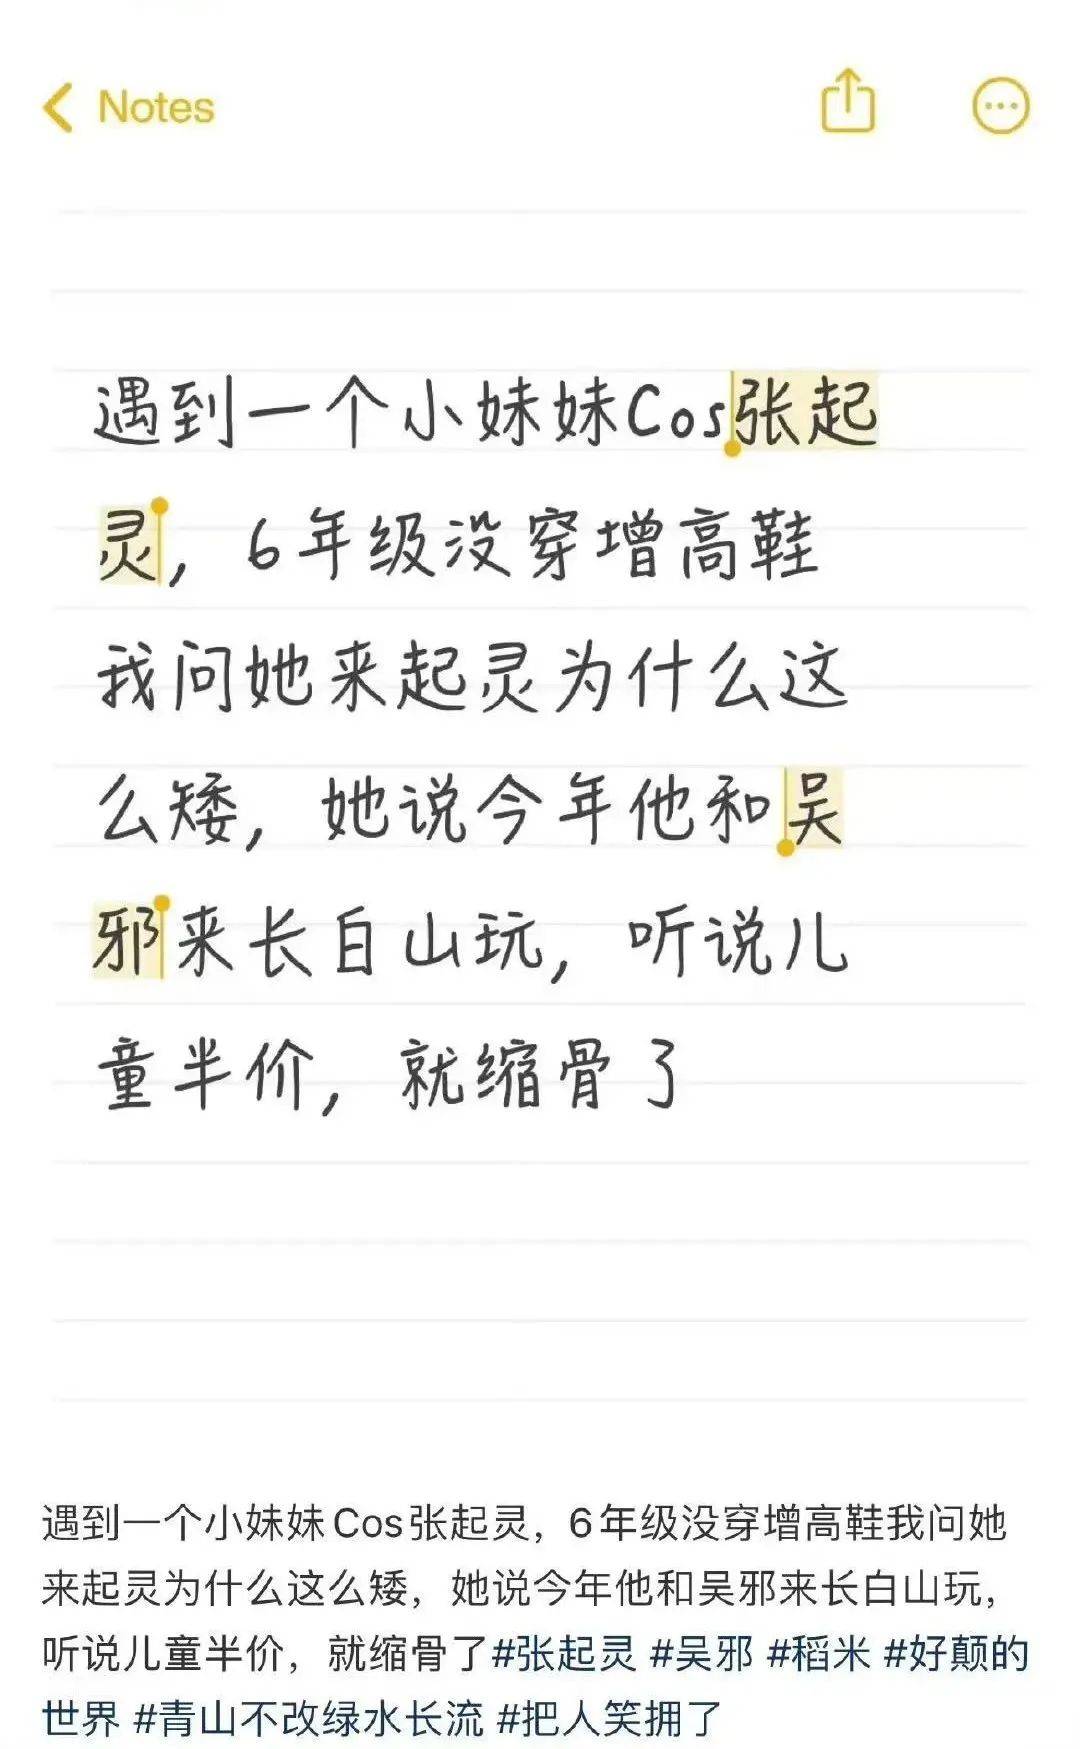 Notes
遇到一个小妹妹Cos张起
灵，6年级没穿增高鞋
我问她来起灵为什么这
么矮，她说今年他和吴
邪来长白山玩，听说儿
童半价，就缩骨了
遇到一个小妹妹Cos张起灵，6年级没穿增高鞋我问她
来起灵为什么这么矮，她说今年他和吴邪来长白山玩，
听说儿童半价，就缩骨了#张起灵 #吴邪 #稻米 #好颠的
世界 #青山不改绿水长流 #把人笑拥了